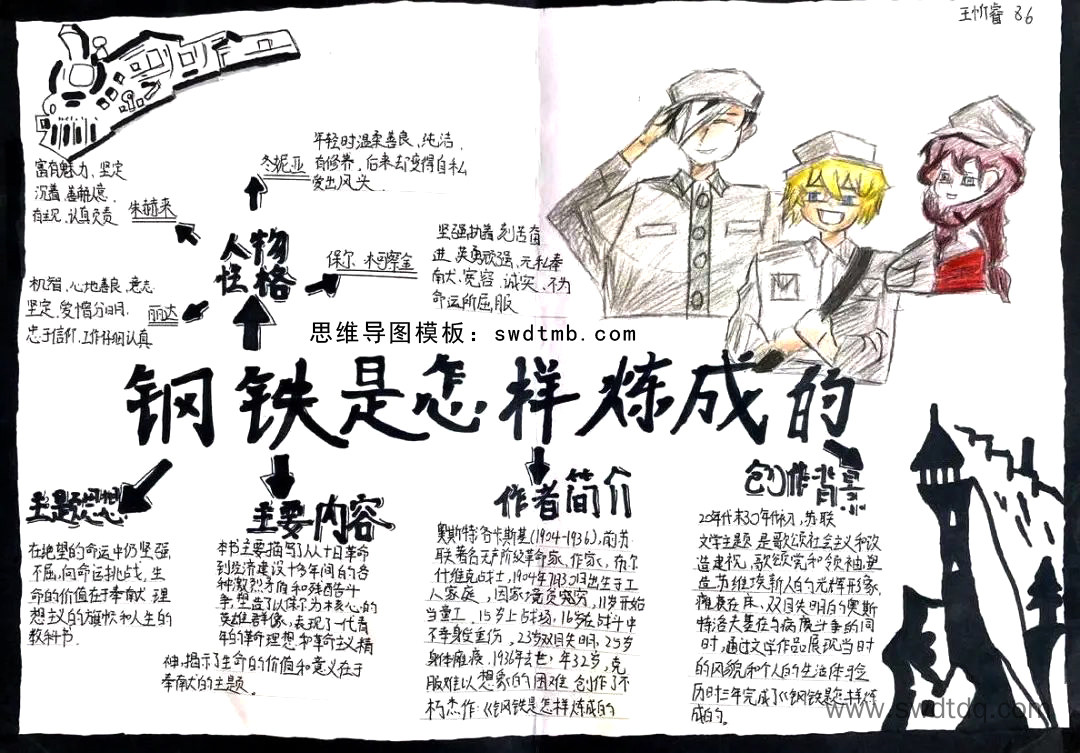 王忻睿 86
富有魅力、坚定
沉着、善解人意、
有主见、认真负责
朱赫来
冬妮亚
年轻时温柔善良、纯洁、
有修养,后来却变得自私
爱出风头
人物
性格
保尔·柯察金
坚强执着、刻苦奋
进、英勇顽强、无私奉
献、宽容、诚实、不为
命运所屈服
机智、心地善良、意志
坚定、爱憎分明、
忠于信仰、工作仔细认真
丽达
思维导图模板:swdtmb.com
钢铁是怎样炼成的
主题思想
在绝望的命运中仍坚强
不屈,向命运挑战,生
命的价值在于奉献 理
想主义的旗帜和人生的
教科书.
主要内容
本书主要描写了从十月革命
到经济建设十多年间的各
种激烈矛盾和残酷斗
争,塑造了以保尔为核心的
英雄群像,表现了一代青
年的革命理想和革命主义精
神,揭示了生命的价值和意义在于
奉献的主题。
作者简介
奥斯特洛卡斯基(1904-1936),前苏
联著名无产阶级革命家、作家、布尔
什维克战士,1904年7月30日出生于工
人家庭,因家境贫寒穷,11岁开始
当童工、15岁上战场,16岁在战斗中
不幸身受重伤、23岁双目失明,25岁
身体瘫痪,1936年去世,年32岁,克
服难以想象的困难 创作了不
朽杰作:《钢铁是怎样炼成的
创作背景
20年代末30年代初,苏联
文学主题 是歌颂社会主义和改
造建设,歌颂党和领袖,塑
造苏维埃新人的光辉形象,
瘫痪在床、双目失明的奥斯
特洛夫基在与病魔斗争的同
时,通过文学作品展现当时
的风貌和个人的生活体验
历时三年完成了《钢铁是怎样炼
成的。
www.swdtdq.com